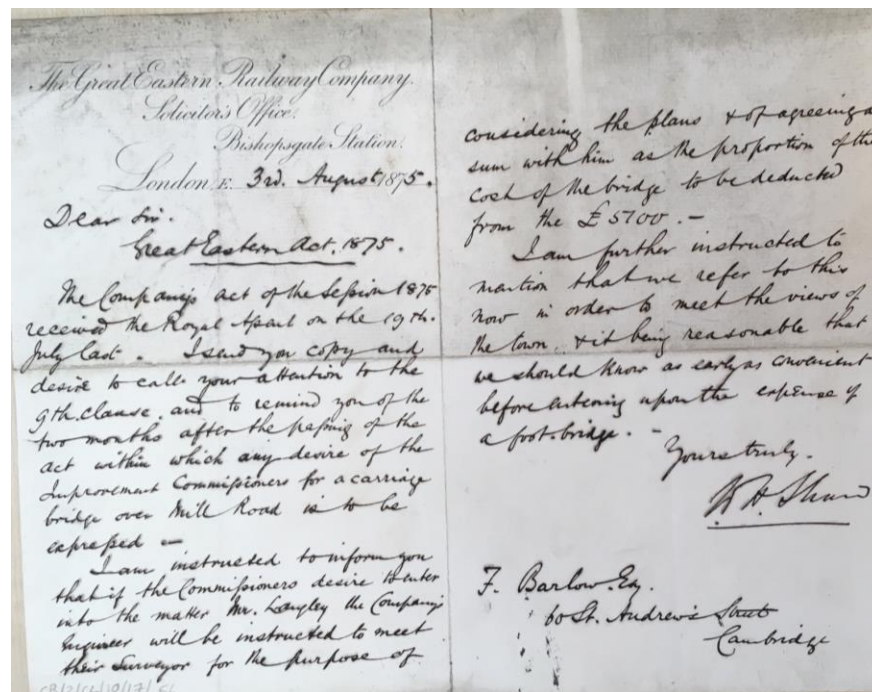 The Great Eastern Railway Company.
Solicitor's Office.
Bishopsgate Station.
London, E. 3rd. August 1875.
Dear Sir.
Great Eastern Act. 1875.
The Company's act of the Session 1875
received the Royal Assent on the 19th.
July last. I send you copy and
desire to call your attention to the
9th. clause, and to remind you of the
two months after the passing of the
act within which any desire of the
Improvement Commissioners for a carriage
bridge over Mill Road is to be
expressed —
I am instructed to inform you
that if the Commissioners desire to enter
into the matter Mr. Langley the Company's
Engineer will be instructed to meet
their Surveyor for the purpose of
considering the plans & of agreeing a
sum with him as the proportion of the
cost of the bridge to be deducted
from the £5700. —
I am further instructed to
mention that we refer to this
now in order to meet the views of
the town & it being reasonable that
we should know as early as convenient
before entering upon the expense of
a foot-bridge. —
Yours truly.
W. H. Shaw
F. Barlow. Esq.
60 St. Andrew's Street
Cambridge